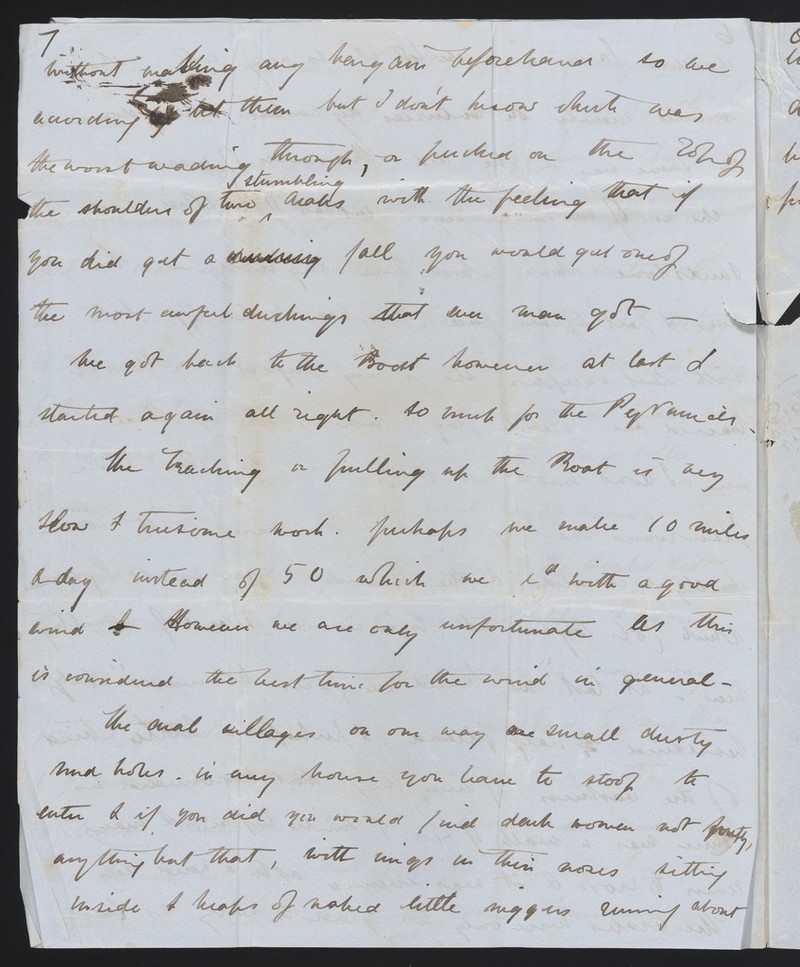 7
without making any bargain beforehand so we
according let them but I don't know which was
the worst wading through, or perched on the top of
the shoulders of two stumbling Arabs with the feeling that if
you did get a ducking fall you would get one of
the most awful duckings that ever man got —
We got back to the Boat however at last &
started again all right. So much for the Pyramids
The tracking or pulling up the Boat is very
slow & tiresome work. perhaps we make 10 miles
a day instead of 50 which we cd with a good
wind & However we are only unfortunate as this
is considered the best time for the wind in general —
The Arab villages on our way are small dusty
mud holes. in any house you have to stoop to
enter & if you did you would find dark women not pretty,
anything but that, with rings in their noses sitting
inside & heaps of naked little niggers running about